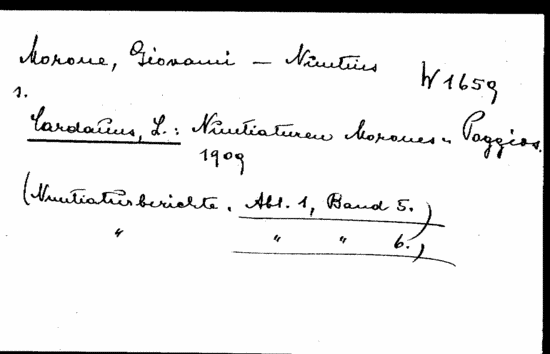 Morone, Giovanni — Nuntius
W 1659
s.
Cardauns, L.: Nuntiaturen Morones u. Poggios.
1909
(Nuntiaturberichte. Abt. 1, Band 5.)
" " " 6.)